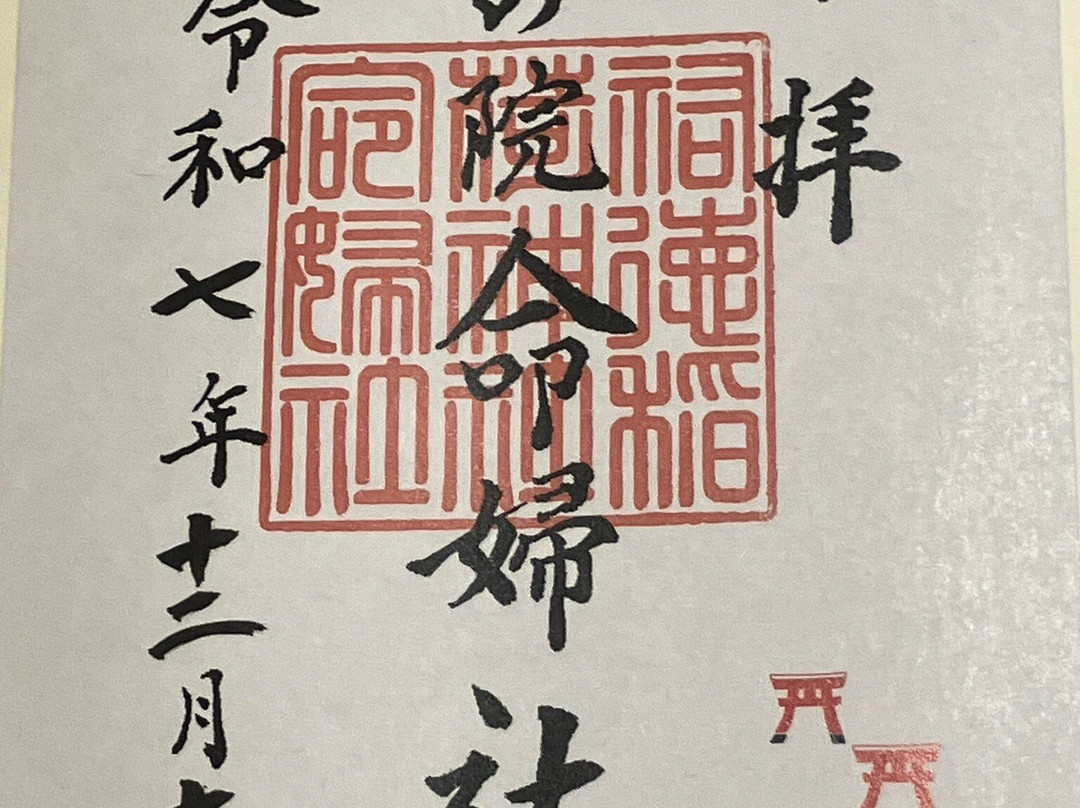 拝
院命婦社
令和七年十二月
祐徳稲
荷神社
命婦社